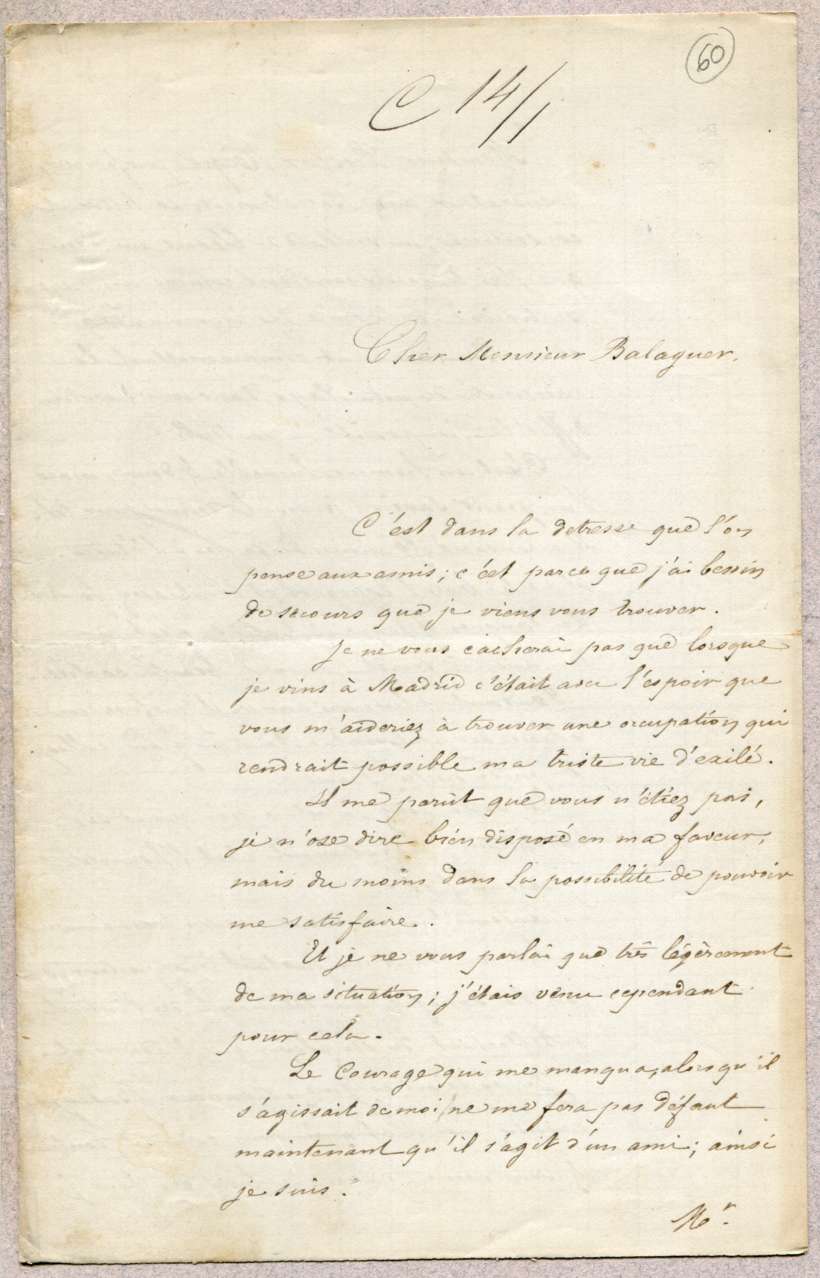 60
C 14/1
Cher Monsieur Balaguer.
C'est dans la detresse que l'on
pense aux amis; c'est parce que j'ai besoin
de secours que je viens vous trouver.
Je ne vous cacherai pas que lorsque
je vins à Madrid c'était avec l'espoir que
vous m'aideriez à trouver une occupation qui
rendrait possible ma triste vie d'exilé.
Il me parût que vous n'étiez pas,
je n'ose dire bien disposé en ma faveur,
mais du moins dans la possibilité de pouvoir
me satisfaire.
Et je ne vous parlai que très légèrement
de ma situation; j'étais venu cependant
pour cela.
Le courage qui me manqua, alors qu'il
s'agissait de moi, ne me fera pas défaut
maintenant qu'il s'agit d'un ami; ainsi
je suis.
Mr.